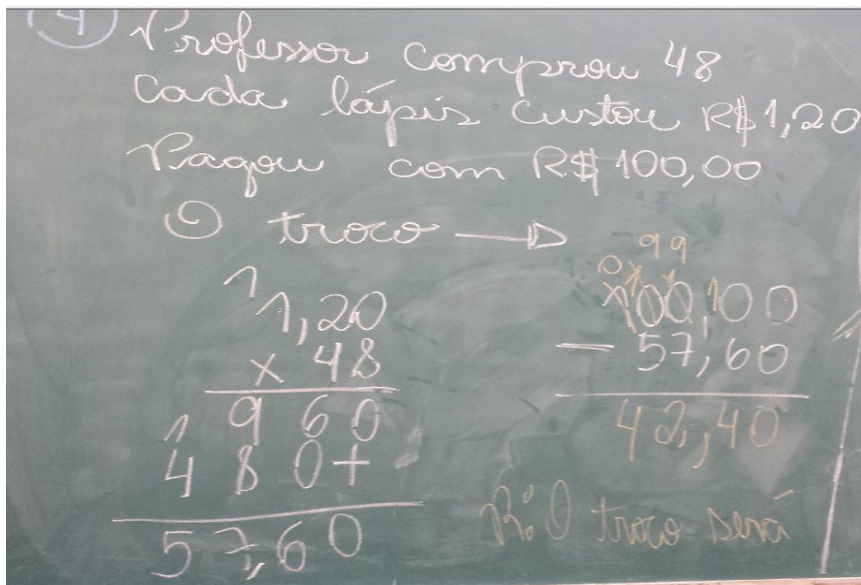 4
Professor comprou 48
Cada lápis custou R$1,20
Pagou com R$100,00
O troco →
1
1,20
x 48
9 6 0
1
4 8 0+
57,60
0 9 9
100,100
- 57,60
42,40
R: O troco será